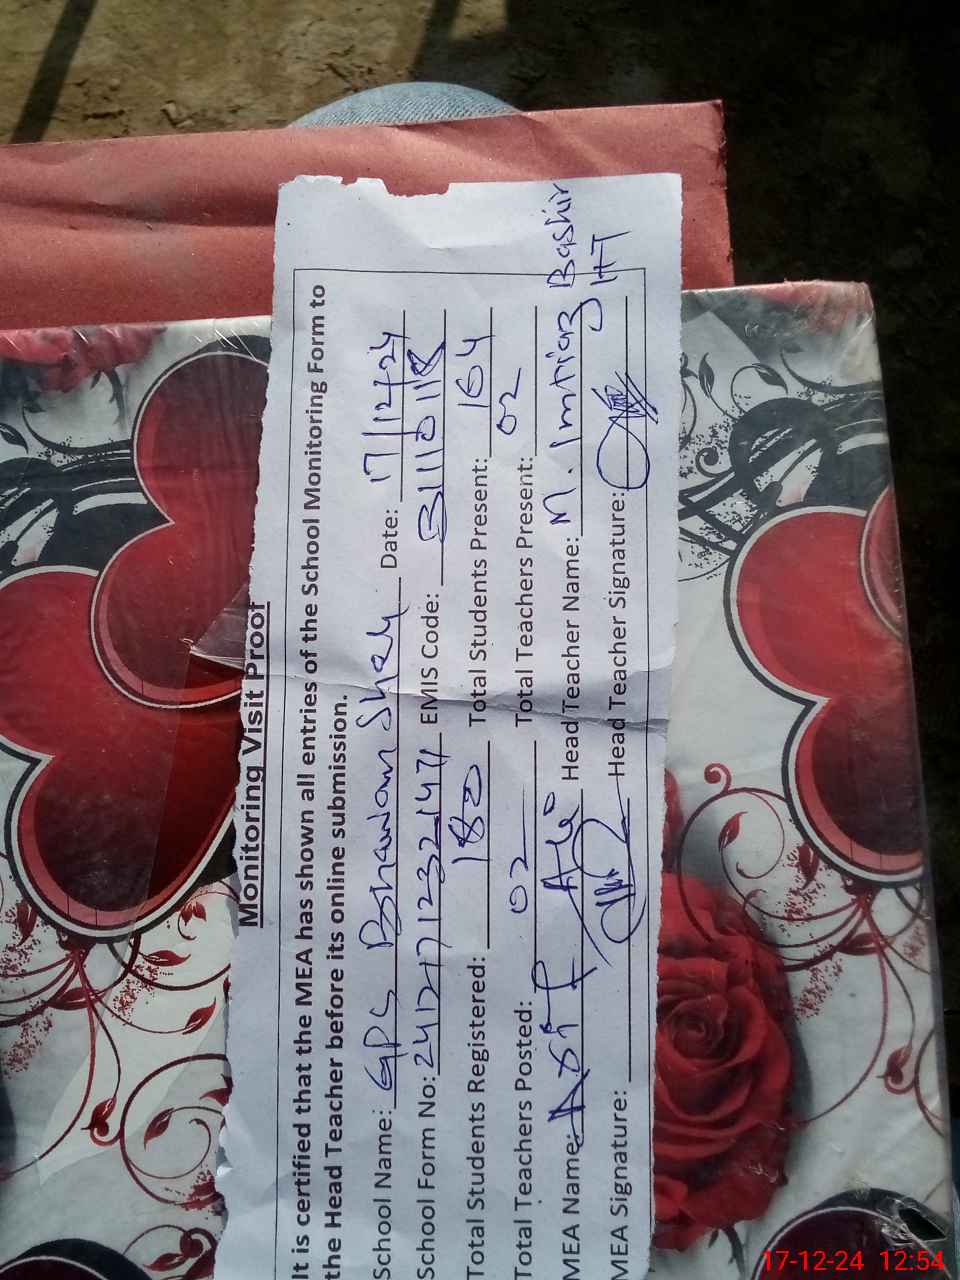 Monitoring Visit Proof
It is certified that the MEA has shown all entries of the School Monitoring Form to
the Head Teacher before its online submission.
School Name: GPS Bhawan Shah Date: 17/12/24
School Form No: 2412171232147 EMIS Code: 31110118
Total Students Registered: 180 Total Students Present: 164
Total Teachers Posted: 02 Total Teachers Present: 02
MEA Name: Asif Ali Head Teacher Name: M. Imtiaz Bashir
MEA Signature: Head Teacher Signature: HT
17-12-24 12:54